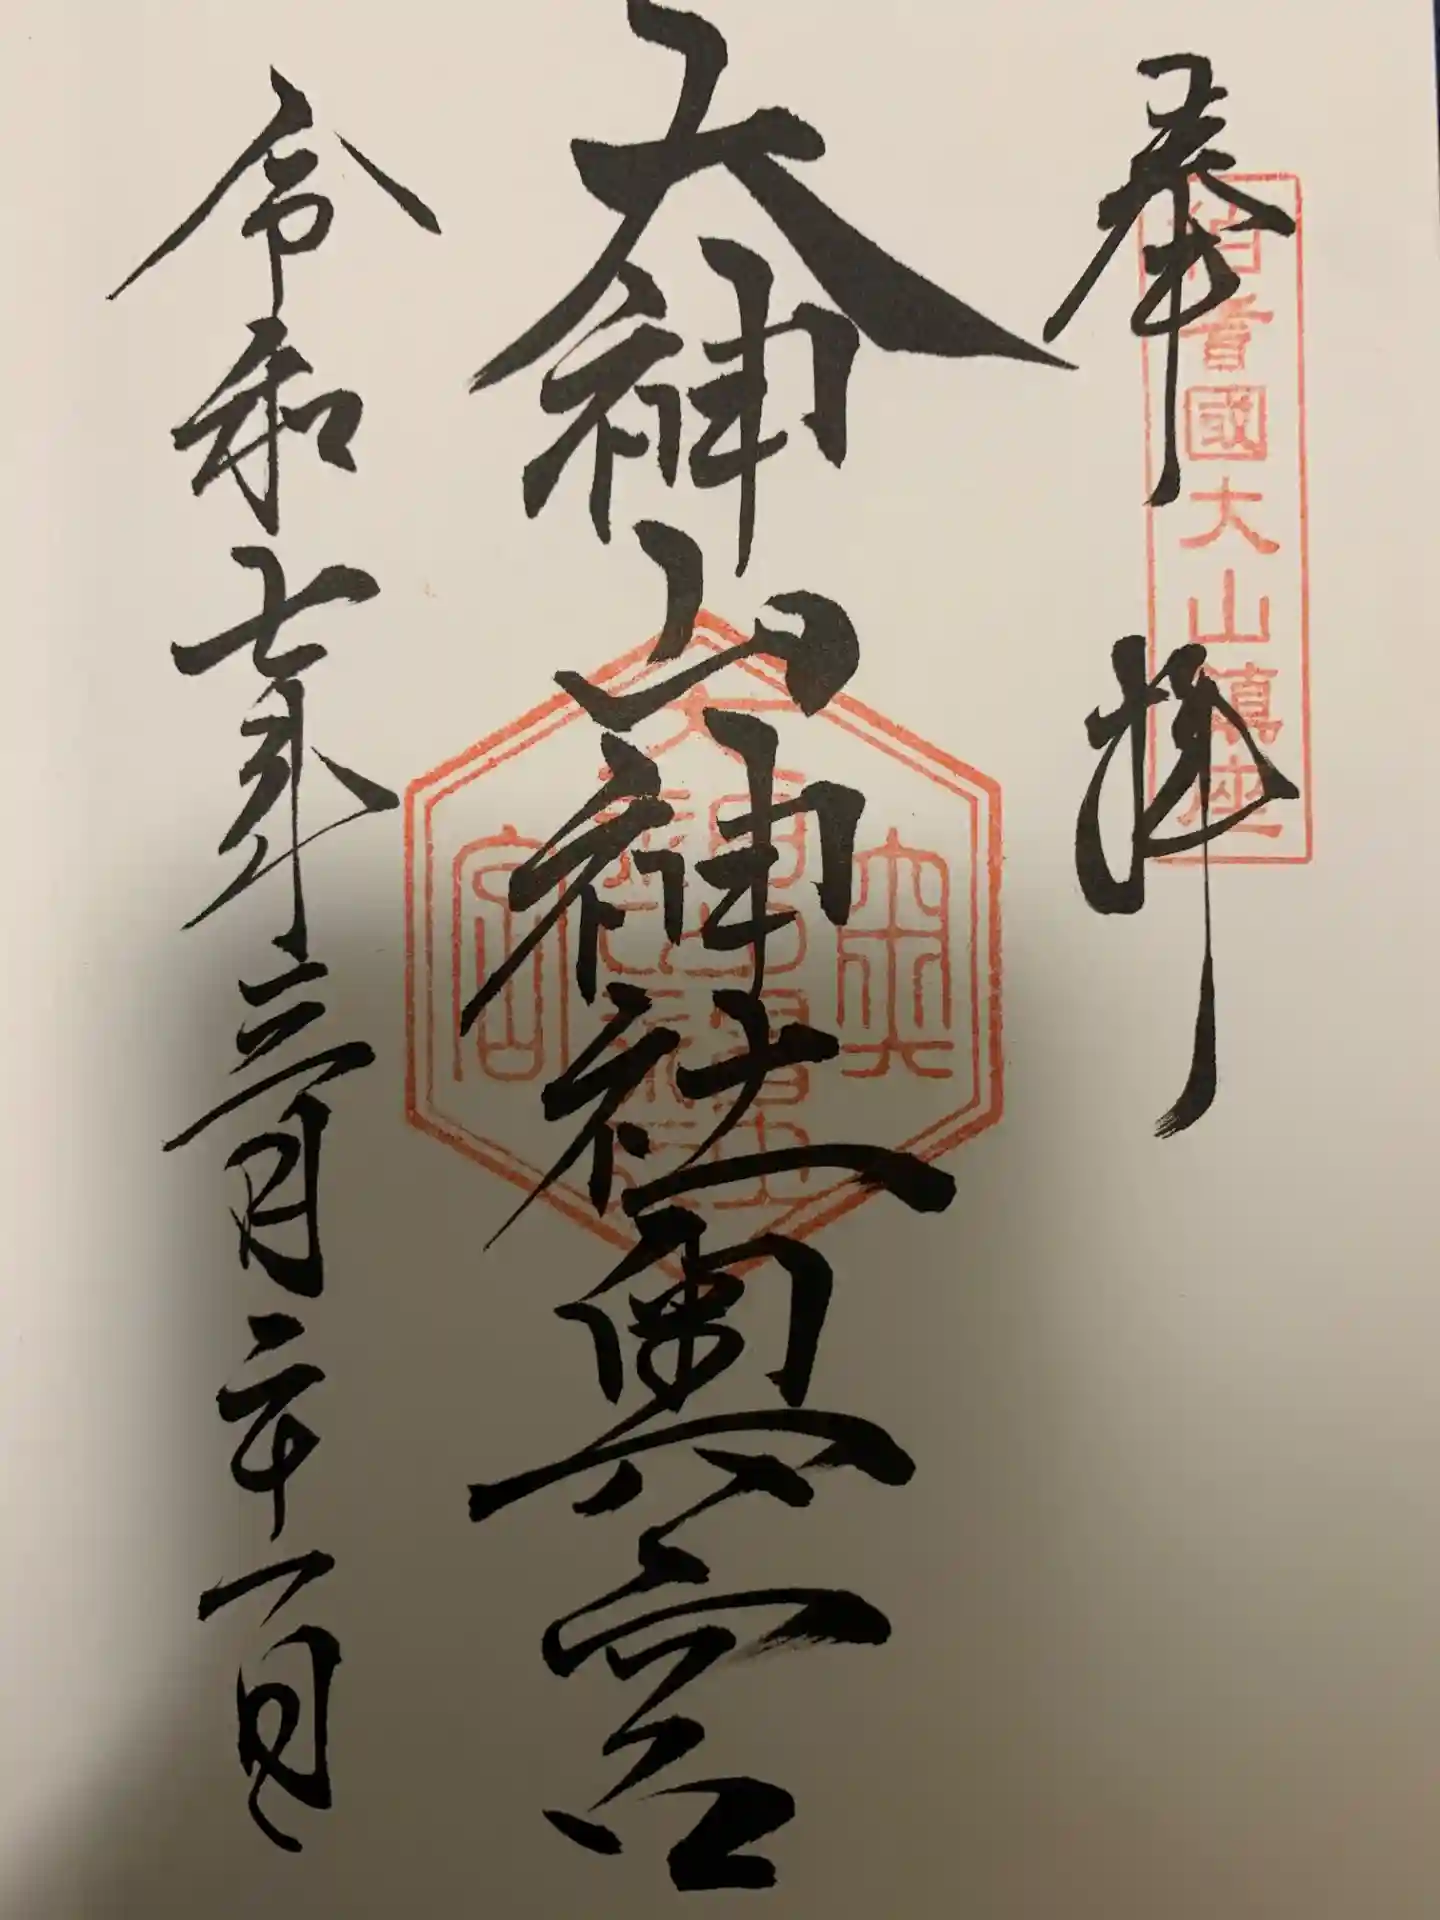 奉拝
伯耆國大山鎮座
大神山神社奥宮
奥
宮
令和七年三月二十一日